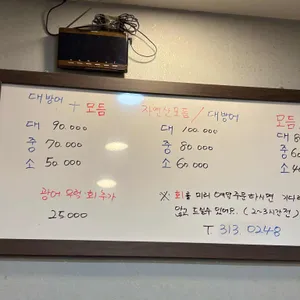 대방어 + 모듬
대 90.000
중 70.000
소 50.000
광어 우럭 회 추가
25.000
자연산모듬 / 대방어
대 100.000
중 80.000
소 60.000
모듬
대 8
중 6
소 4
※ 회를 미리 예약주문하시면 기다리
않고 드실수 있어요. (2~3시간전)
T. 313 0248